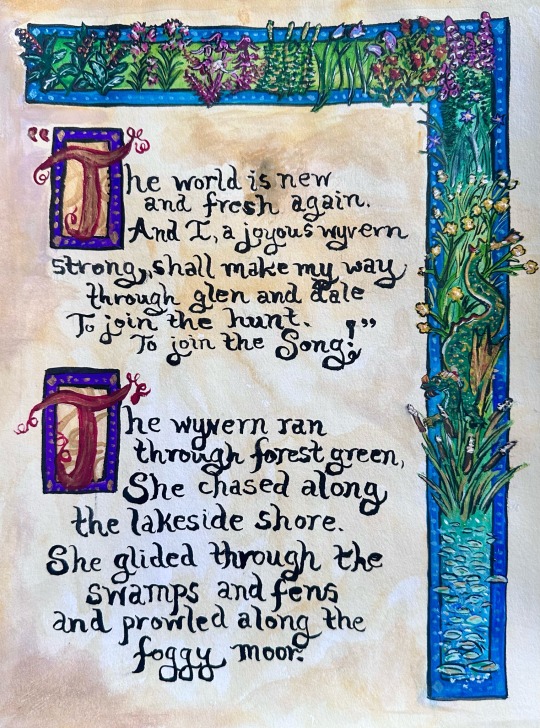 "The world is new
and fresh again.
And I, a joyous wyvern
strong, shall make my way
through glen and dale
To join the hunt.
To join the Song!"
The wyvern ran
through forest green,
She chased along
the lakeside shore.
She glided through the
swamps and fens
and prowled along the
foggy moor.